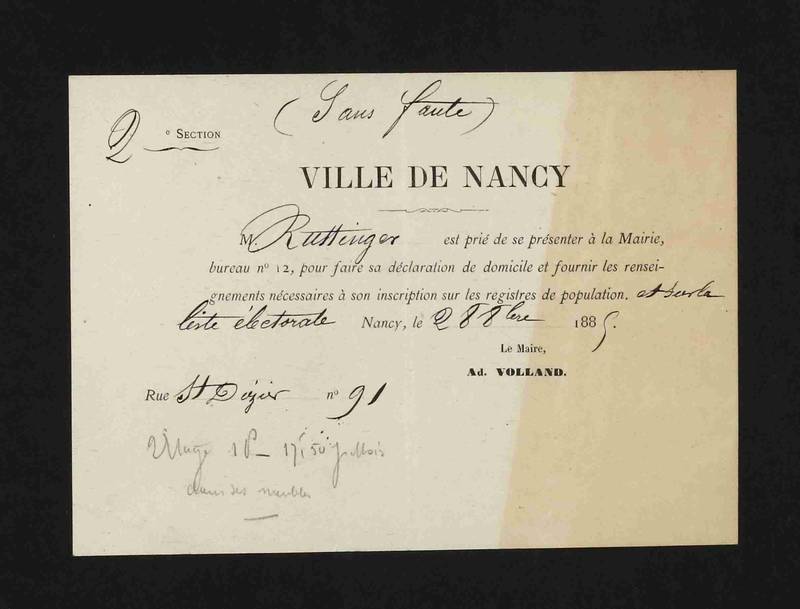 (Sans faute)
2 e Section
VILLE DE NANCY
M. Ruttinger est prié de se présenter à la Mairie,
bureau nº 12, pour faire sa déclaration de domicile et fournir les rensei-
gnements nécessaires à son inscription sur les registres de population. et sur la
liste électorale Nancy, le 28 8bre 1885.
Le Maire,
Ad. VOLLAND.
Rue St Dizier nº 91
2 Etage 1 P 17f50 Mois
dans ses meubles